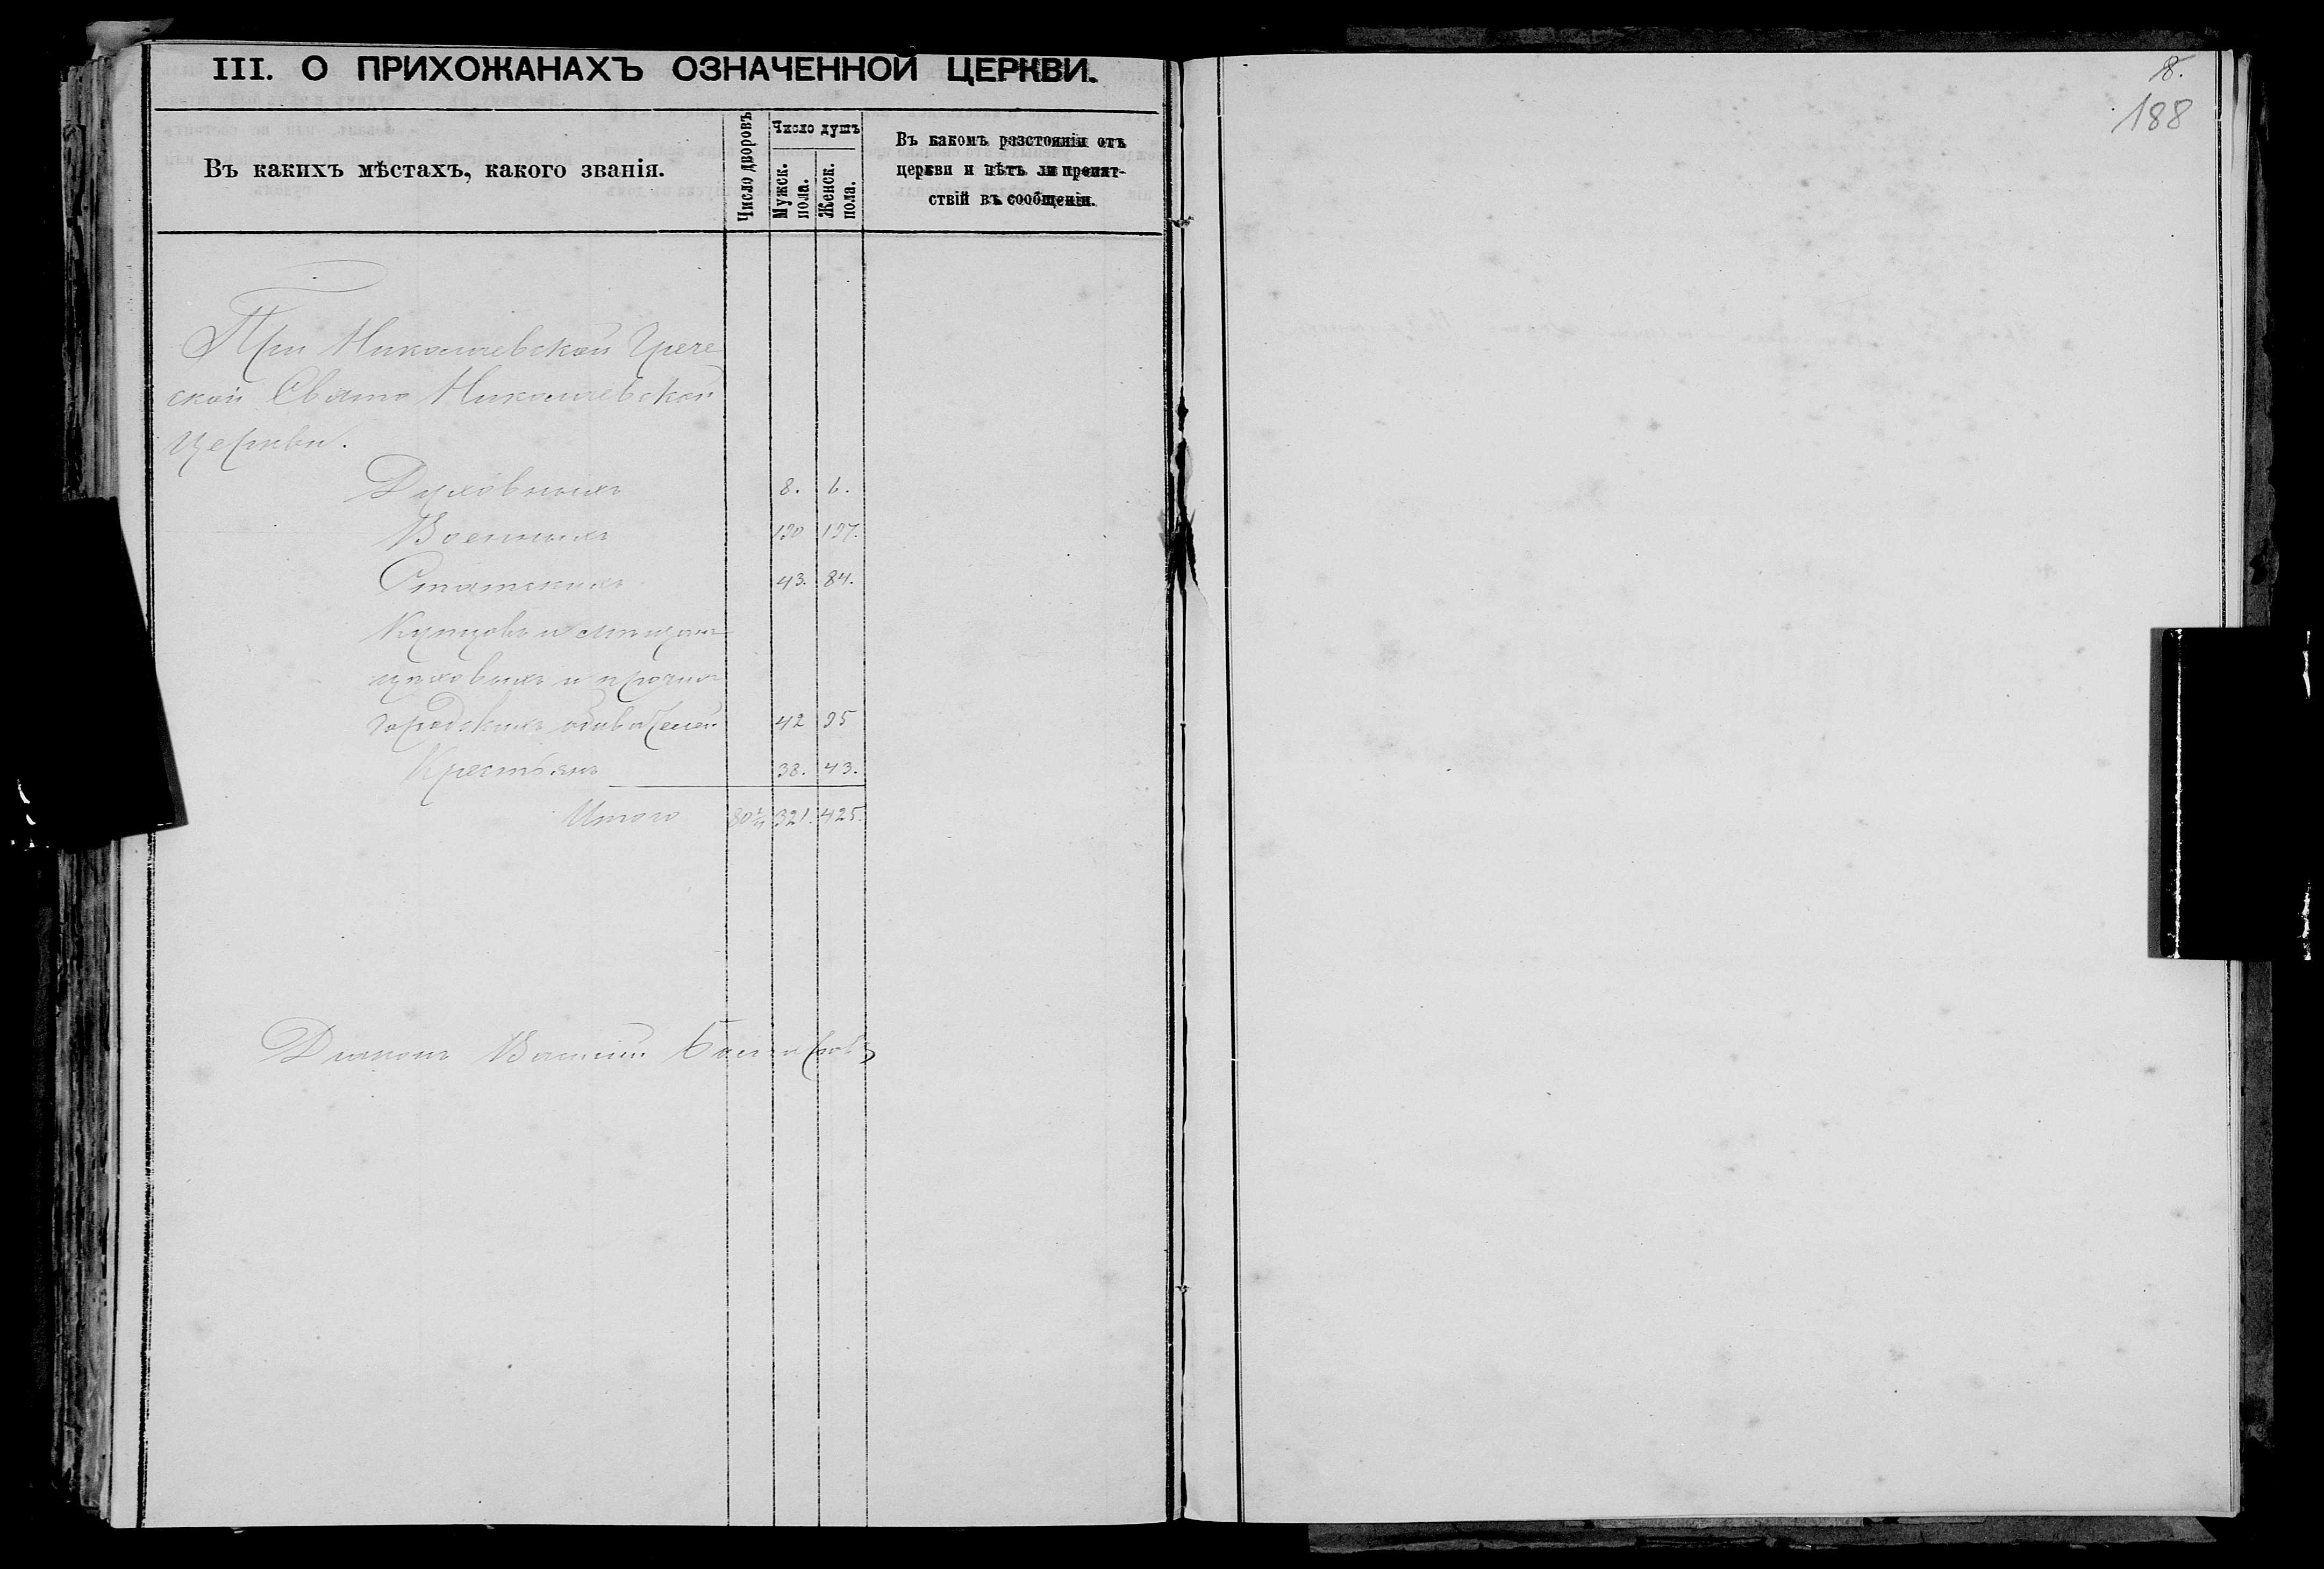 III. О ПРИХОЖАНАХЪ ОЗНАЧЕННОЙ ЦЕРКВИ.
Въ какихъ мѣстахъ, какого званія.
Число дворовъ
Число душъ
Мужск. пола.
Женск. пола.
Въ какомъ разстояніи отъ
церкви и нѣтъ ли препят-
ствій въ сообщеніи.
При Николаевской Грече
ской Свято Николаевской
Церкви.
Духовныхъ 8. 6.
Военныхъ 190 197.
Статскихъ 43. 84.
Купцовъ и мѣщанъ
цеховыхъ и прочихъ
городскихъ обывателей 42 95
Крестьянъ 38. 43.
Итого 321. 425.
Диаконъ Василий
8.
188